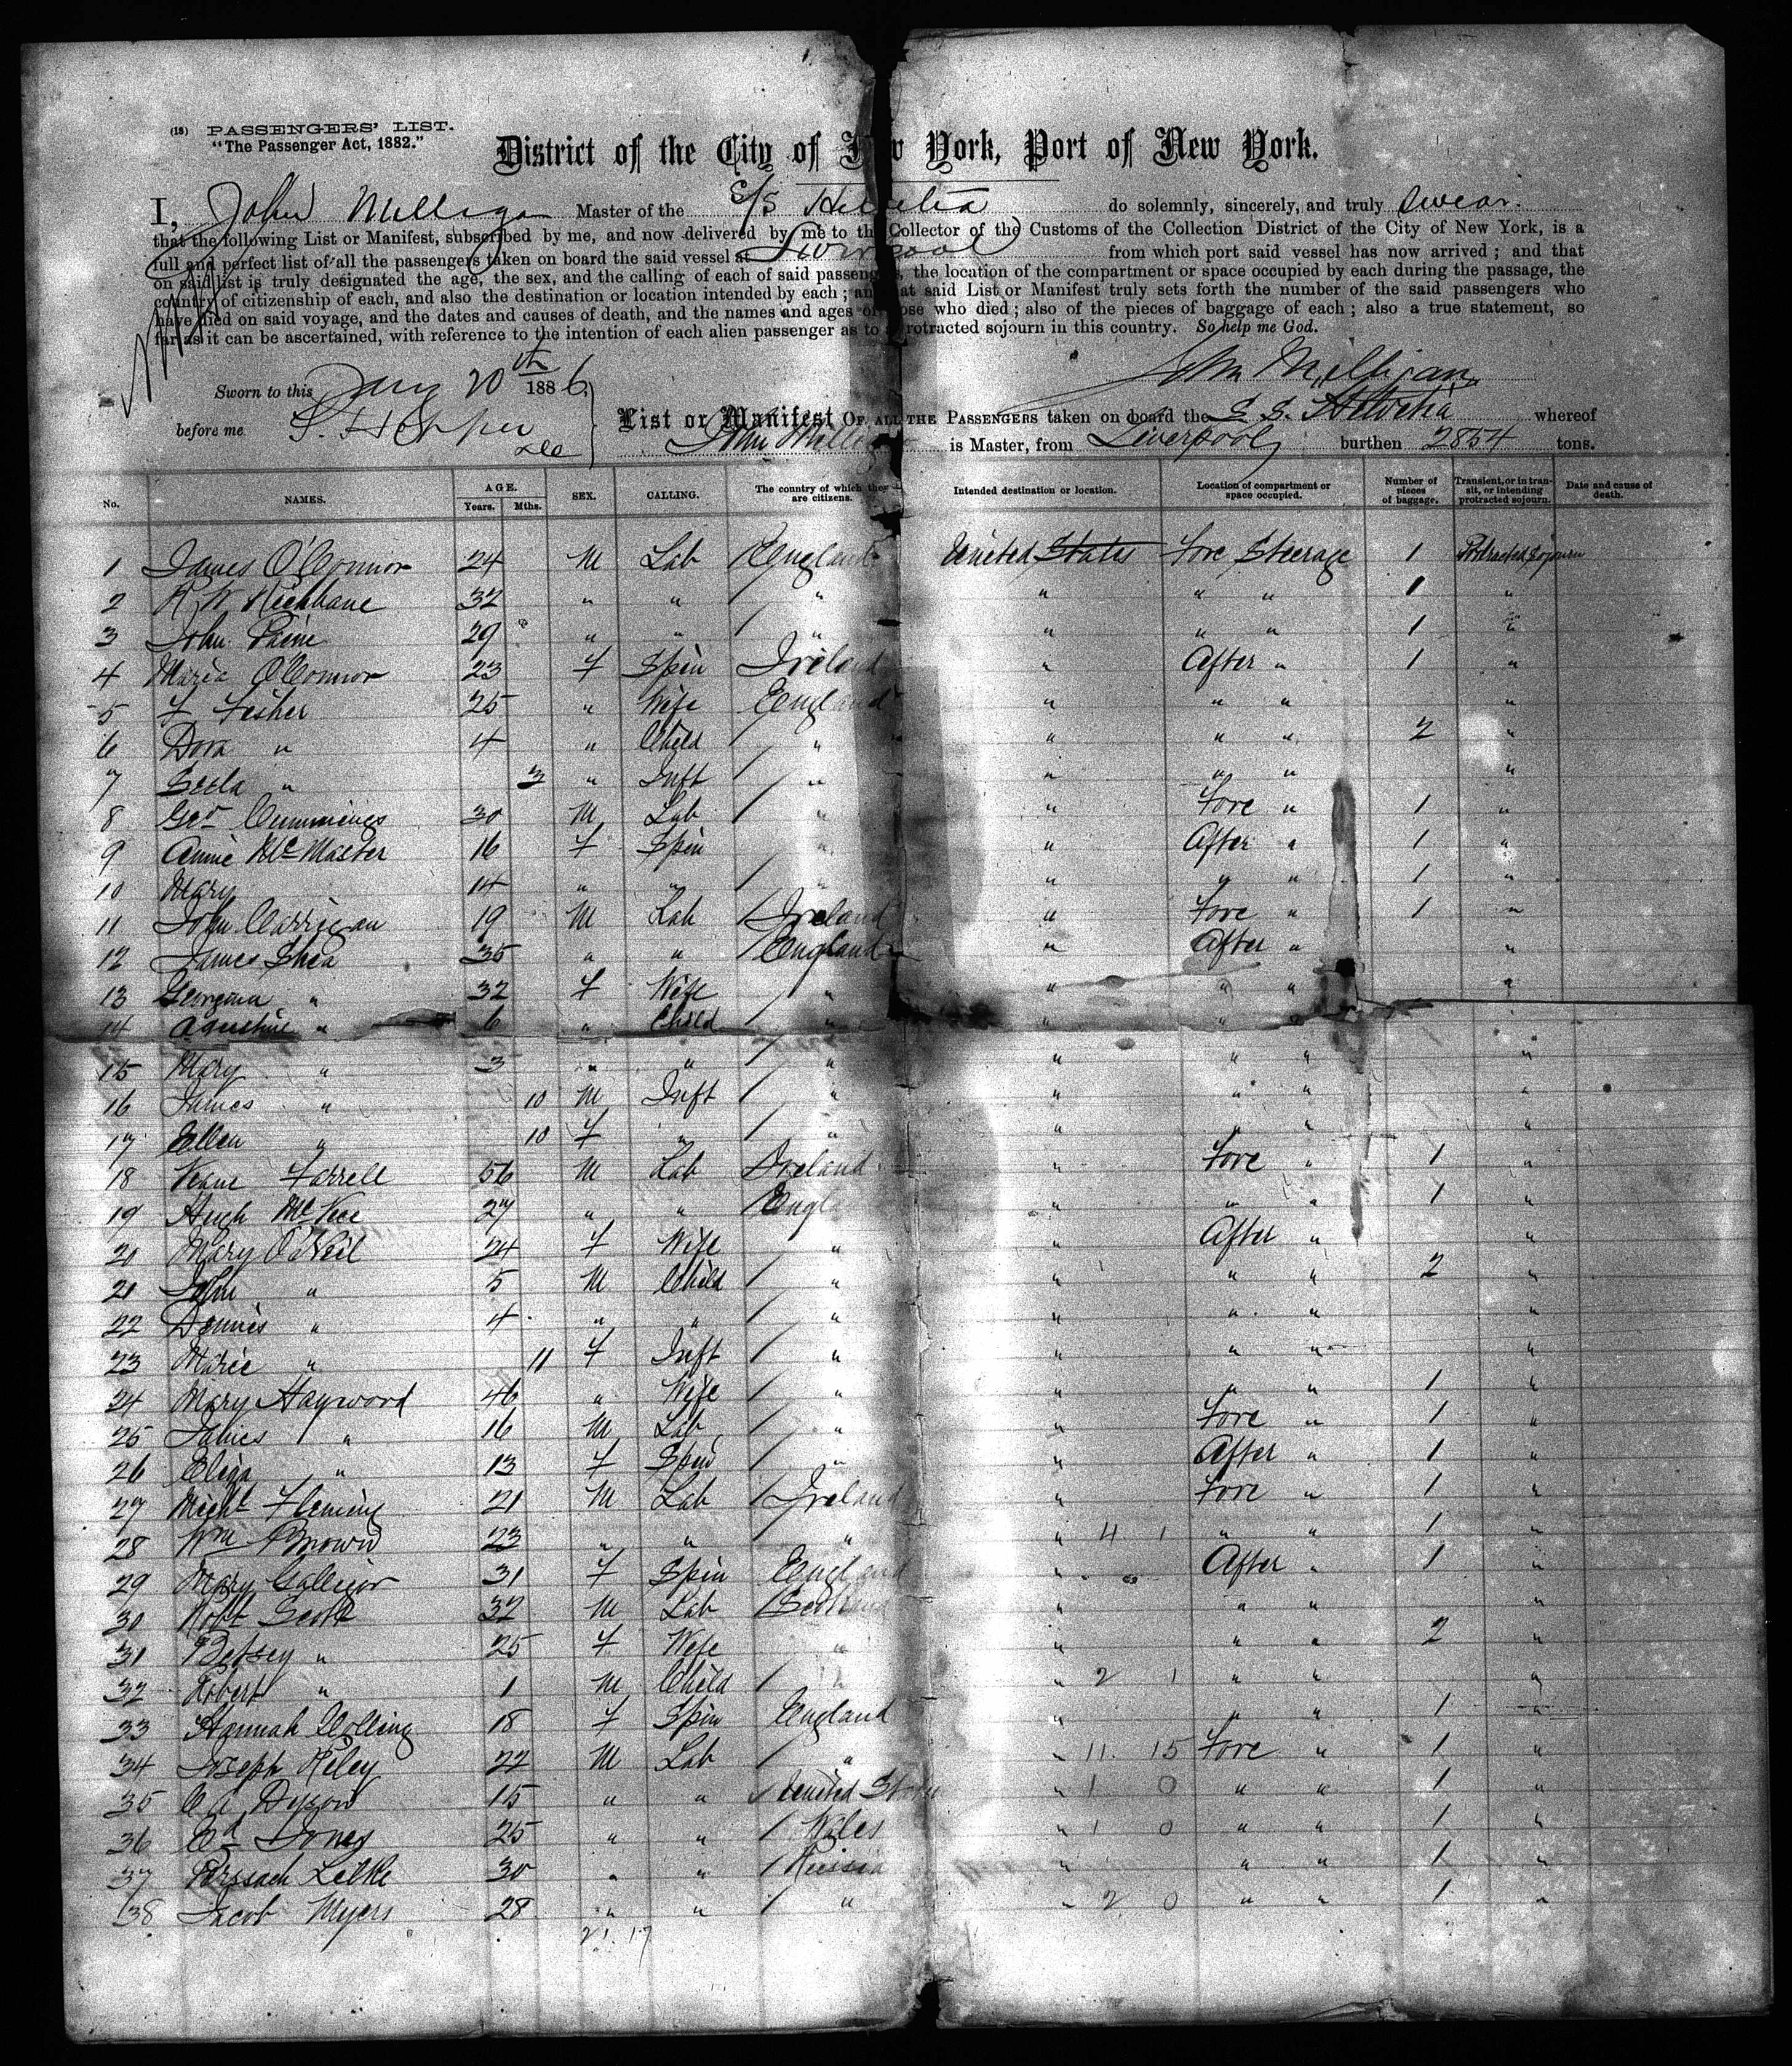 (13) PASSENGERS' LIST.
"The Passenger Act, 1882."
District of the City of New York, Port of New York.
I, John Milligan Master of the S/S Helvetia do solemnly, sincerely, and truly swear.
that the following List or Manifest, subscribed by me, and now delivered by me to the Collector of the Customs of the Collection District of the City of New York, is a
full and perfect list of all the passengers taken on board the said vessel at Liverpool from which port said vessel has now arrived; and that
on said list is truly designated the age, the sex, and the calling of each of said passengers, the location of the compartment or space occupied by each during the passage, the
country of citizenship of each, and also the destination or location intended by each; and that said List or Manifest truly sets forth the number of the said passengers who
have died on said voyage, and the dates and causes of death, and the names and ages of those who died; also of the pieces of baggage of each; also a true statement, so
far as it can be ascertained, with reference to the intention of each alien passenger as to a protracted sojourn in this country. So help me God.
John Milligan
Sworn to this Jany 20th 1886
before me
List or Manifest OF ALL THE PASSENGERS taken on board the S. S. Helvetia whereof
John Milligan is Master, from Liverpool burthen 2854 tons.
No. NAMES. AGE. Years. Mths. SEX. CALLING. The country of which they are citizens. Intended destination or location. Location of compartment or space occupied. Number of pieces of baggage. Transient, or in transit, or intending protracted sojourn. Date and cause of death.
1 James O'Connor 24 M Lab England United States Fore Steerage 1 Protracted Sojourn
2 32 " " " " " " 1 "
3 John 29 " " " " " " 1 "
4 Maria O'Connor 23 F Spin Ireland " After " 1 "
5 F Fisher 25 " Wife England " " " "
6 Dora " 4 " Child " " " " 2 "
7 " 3 " Inft " " " " "
8 Geo Cummings 30 M Lab " " Fore " 1 "
9 Annie McMaster 16 F Spin " " After " 1 "
10 Mary 14 " " " " " " 1 "
11 John Carrigan 19 M Lab Ireland " Fore " 1 "
12 James Shea 35 " " England " After " "
13 Georgina " 32 F Wife " " " " "
14 Agustine " 6 " Child " " " " "
15 Mary " 3 " " " " " " "
16 James " 10 M Inft " " " " "
17 Ellen " 10 F " " " " " "
18 Farrell 56 M Lab Ireland " Fore " 1 "
19 Hugh McKee 27 " " England " " " 1 "
20 Mary O'Neil 24 F Wife " " After " "
21 John " 5 M Child " " " " 2 "
22 Dennis " 4 " " " " " " "
23 Marie " 11 F Inft " " " " "
24 Mary Hayword 46 " Wife " " " " 1 "
25 James " 16 M Lab " " Fore " 1 "
26 Eliza " 13 F Spin " " After " 1 "
27 Michl Fleming 21 M Lab Ireland " Fore " 1 "
28 Wm Brown 23 " " " " 4 1 " " 1 "
29 Mary Galligor 31 F Spin England " After " 1 "
30 Robt Scott 32 M Lab Scotland " " " "
31 Betsey " 25 F Wife " " " " 2 "
32 Robert " 1 M Child " " 2 1 " " "
33 Hannah Colling 18 F Spin England " " " 1 "
34 Joseph Riley 22 M Lab " " 11 15 Fore " 1 "
35 C A Dyson 15 " " United States " 1 0 " " 1 "
36 Ed Jones 25 " " Wales " 1 0 " " 1 "
37 30 " " Russia " " " 1 "
38 Jacob Myers 28 " " " " 2 0 " " 1 "
21 17